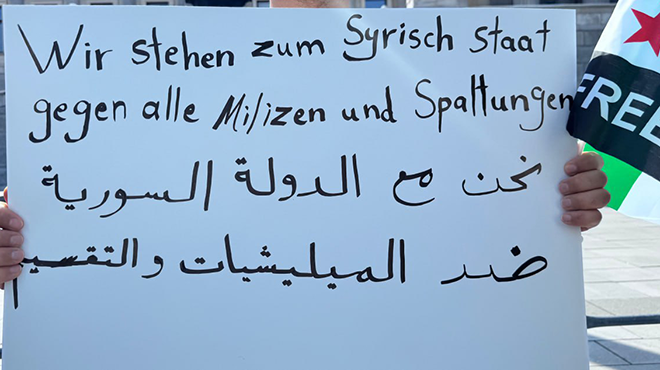 Wir stehen zum Syrisch staat
gegen alle Milizen und Spaltungen
نحن مع الدولة السورية
ضد الميليشيات والتقسيم
FREE